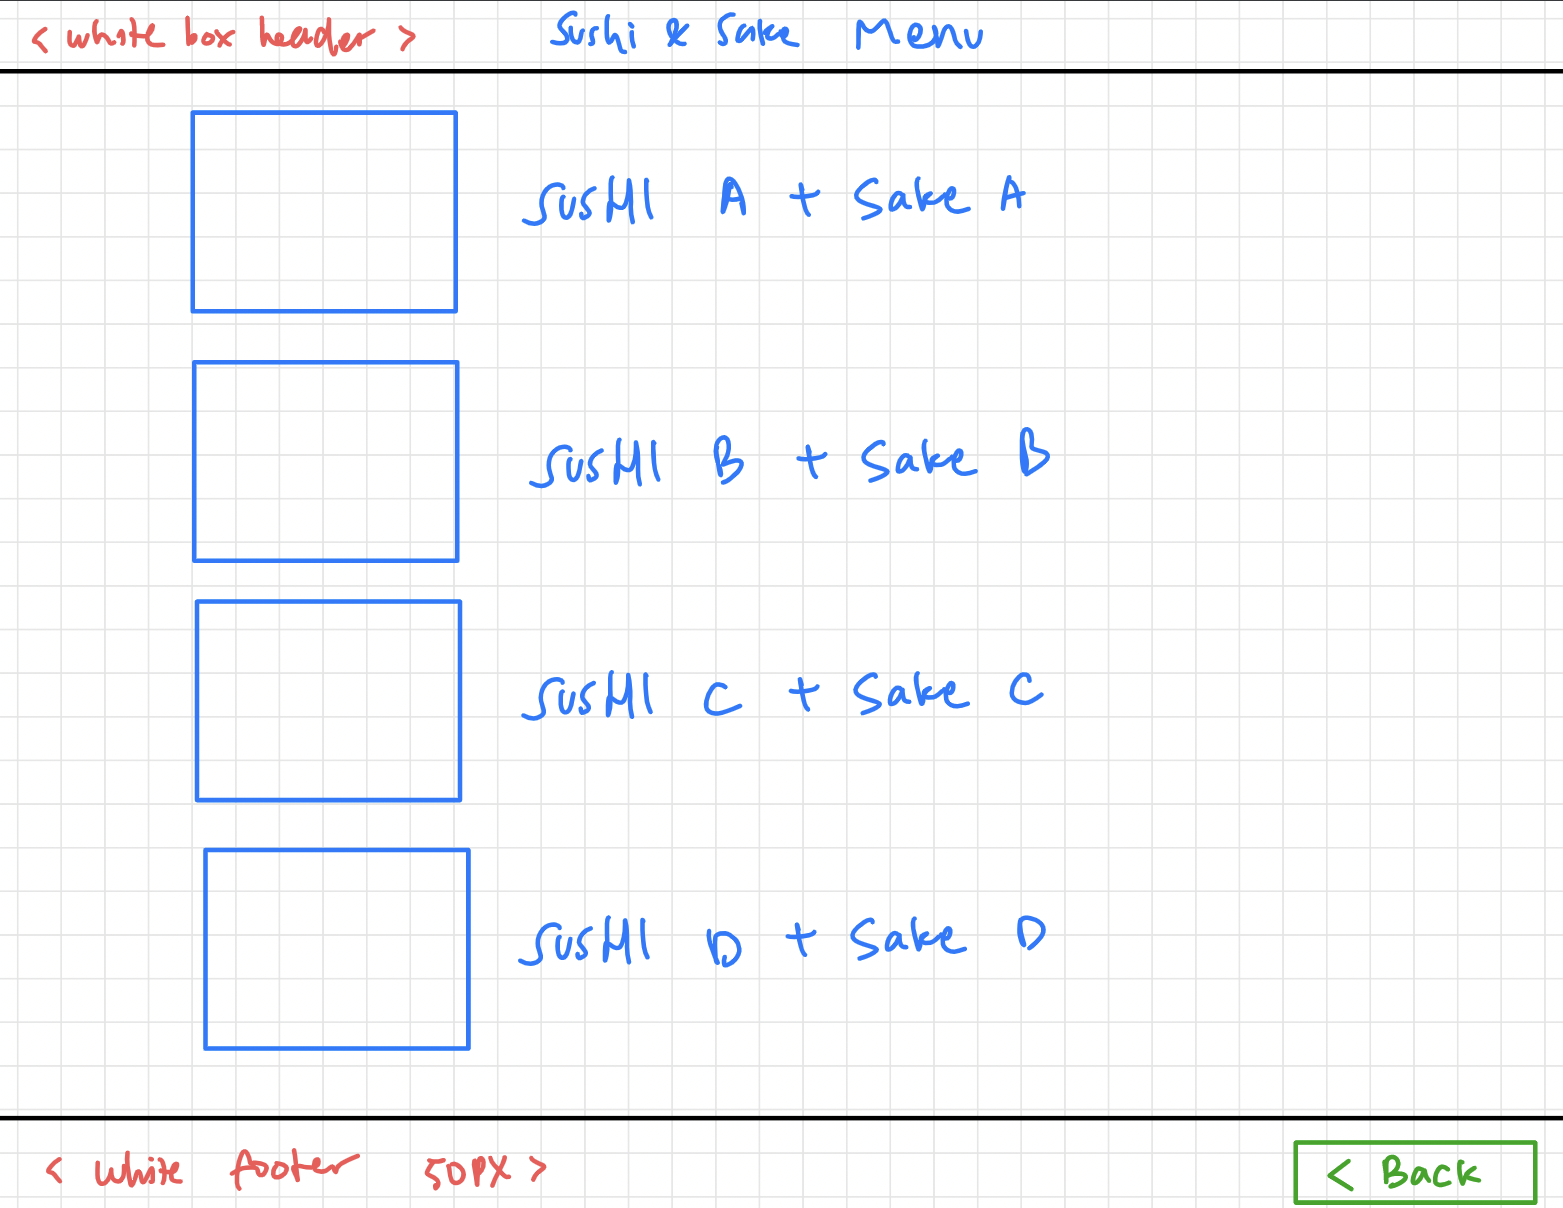 < white box header > Sushi & Sake Menu
SUSHI A + Sake A
SUSHI B + Sake B
SUSHI C + Sake C
SUSHI D + Sake D
< white footer 50px >
< Back